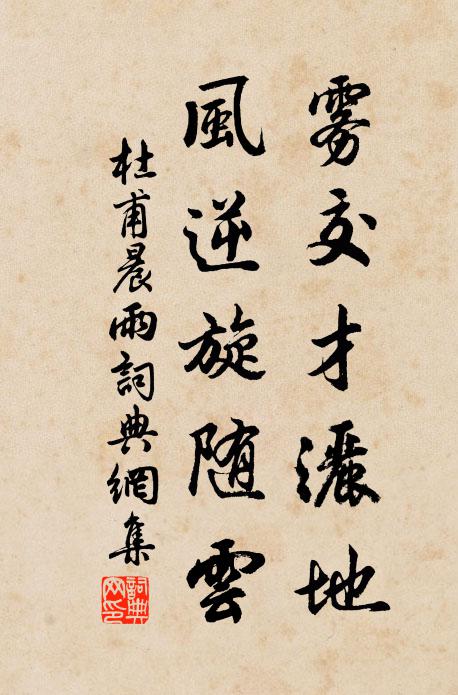 雾交才灑地
風逆旋随雲
杜甫晨雨詞典網集
詞典网印